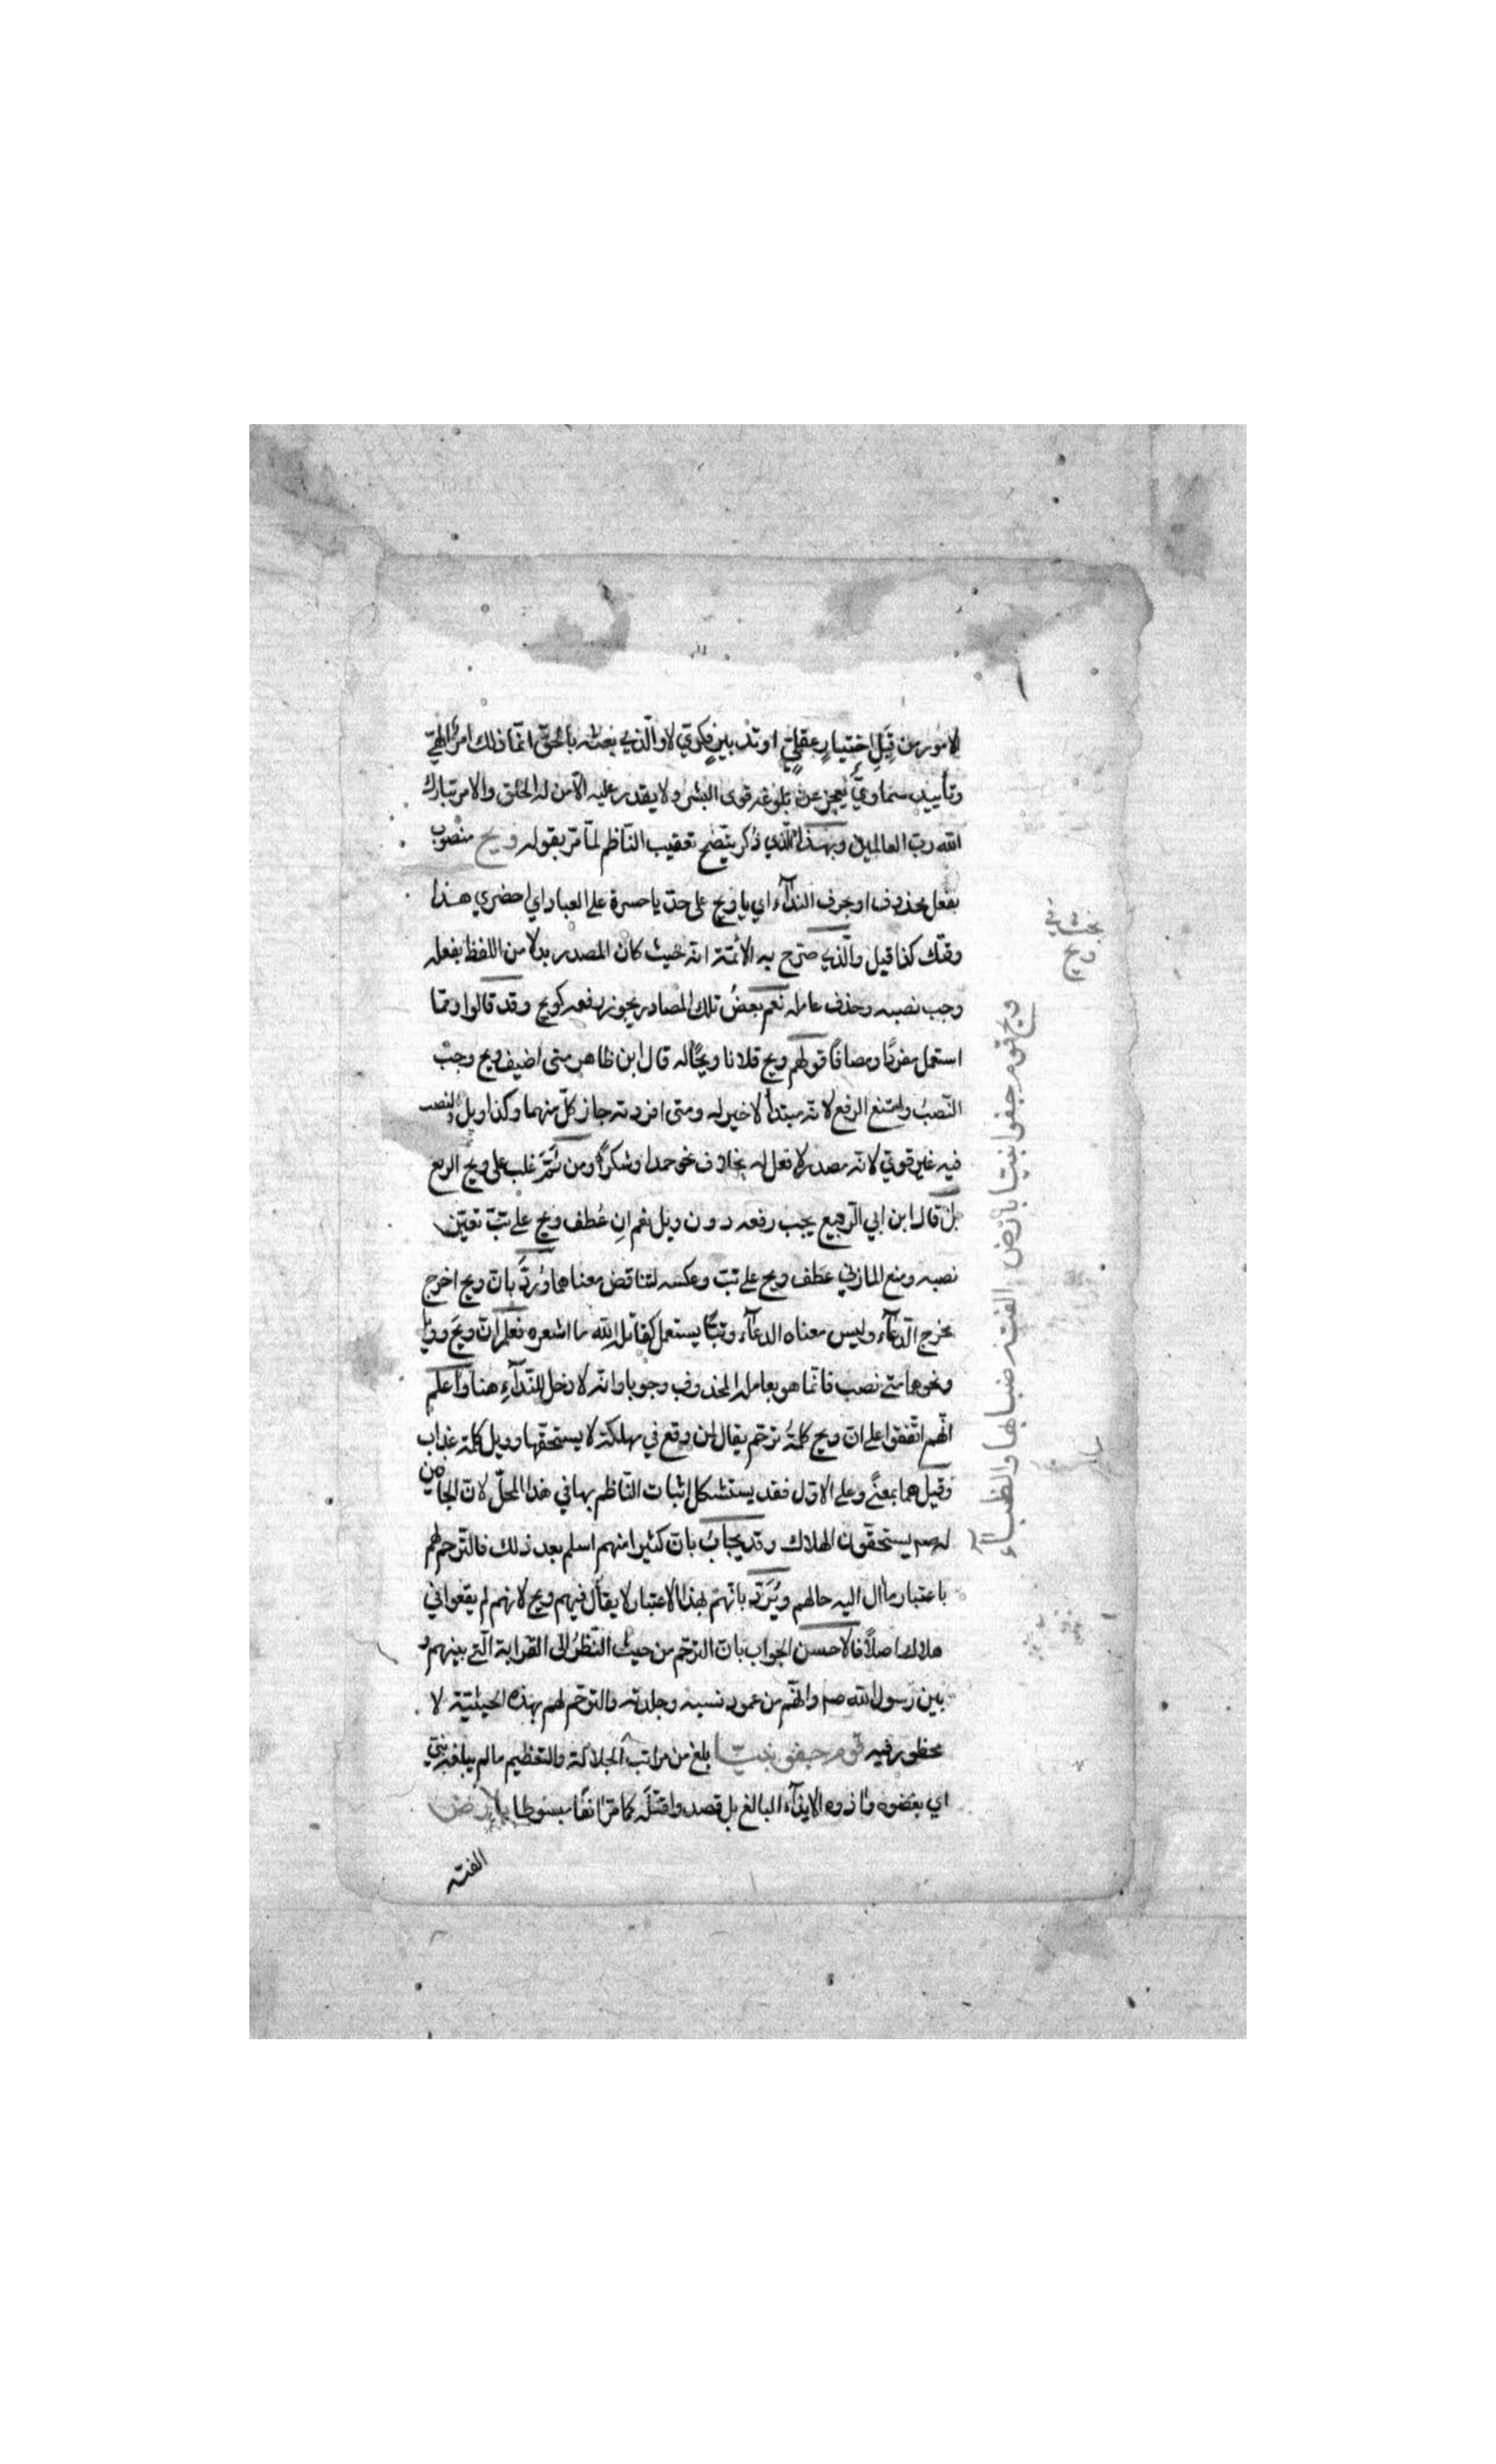 الامور من قِبَلِ اختيارٍ عقليٍّ او تدبيرٍ فكريٍّ لا والّذي بعثه بالحقّ انّما ذلك امرٌ الهيّ
وتأييد سماويّ يعجز عن بلوغه قوى البشر ولا يقدر عليه الّا من له الخلق والامر تبارك
الله ربّ العالمين وبهذا الّذي ذُكر يتّضح تعقيب النّاظم لما مرّ بقوله ويح منصوب
بفعل محذوف او بحرف الندآء اي يا ويح على حدّ يا حسرة على العباد اي احضري هذا
وقتك كذا قيل والّذي صرّح به الائمّة انّه حيث كان المصدر بدلا من اللفظ بفعله
وجب نصبه وحذف عامله نعم بعضُ تلك المصادر يجوز رفعه كويح وقد قالوا وممّا
استعمل مفردًا ومضافًا قولهم ويح فلانا ويحًا له قال ابن طاهر متى اضيف ويح وجب
النّصبُ وامتنع الرفع لانّه مبتدأ لا خبر له ومتى افردته جاز كلّ منهما وكذا ويل والنصب
فيه غير قويّ لانّه مصدر لا فعل له بخلاف نحو حمدا وشكرًا ومن ثَمَّ غلب على ويح الرفع
بل قال ابن ابي الرّبيع يجب رفعه دون ويل نعم ان عُطف ويح على تبّ تعيّن
نصبه ومنع المازنيّ عطف ويح على تبّ وعكسه لتناقض معناهما ورُدّ بانّ ويح اخرج
مخرج الدّعآء وليس معناه الدعآء وتبًّا يستعمل كقاتل الله ما اشعره فعلم انّ ويحَ وويل
ونحوهما متى نصب فانّما هو بعامله المحذوف وجوبا وانّه لا دخل للنّدآءِ هنا واعلم
انّهم اتّفقوا على انّ ويح كلمةُ ترحّم يقال لمن وقع في مهلكة لا يستحقّها وويل كلمة عذاب
وقيل هما بمعنًى وعلى الاوّل فقد يستشكل اثبات النّاظم بها في هذا المحلّ لانّ الجافين
له صم يستحقّون الهلاك وقد يجابُ بانّ كثيرا منهم اسلم بعد ذلك فالترّحم لهم
باعتبار ما آل اليه حالهم ويُرَدّ بانّهم بهذا الاعتبار لا يقال فيهم ويح لانهم لم يقعوا في
هلاك اصلًا فالاحسن الجواب بانّ الترحّم من حيث النّظرُ الى القرابة الّتي بينهم و
بين رسول الله صم وانّهم من عمود نسبه وجلدته والترحّم لهم بهذه الحيثيّة لا
محظور فيه قوم جفوا نبيّا بلغ من مراتب الجلالة والتعظيم ما لم يبلغه نبيّ
اي بغضوه وآذوه الايذآء البالغ بل قصدوا قتلَه كما مرّ انفًا مبسوطا بارض
الفته
بحث في
ويح
ويح قوم جفوا نبيا بارض الفته ضبابها والظبآء